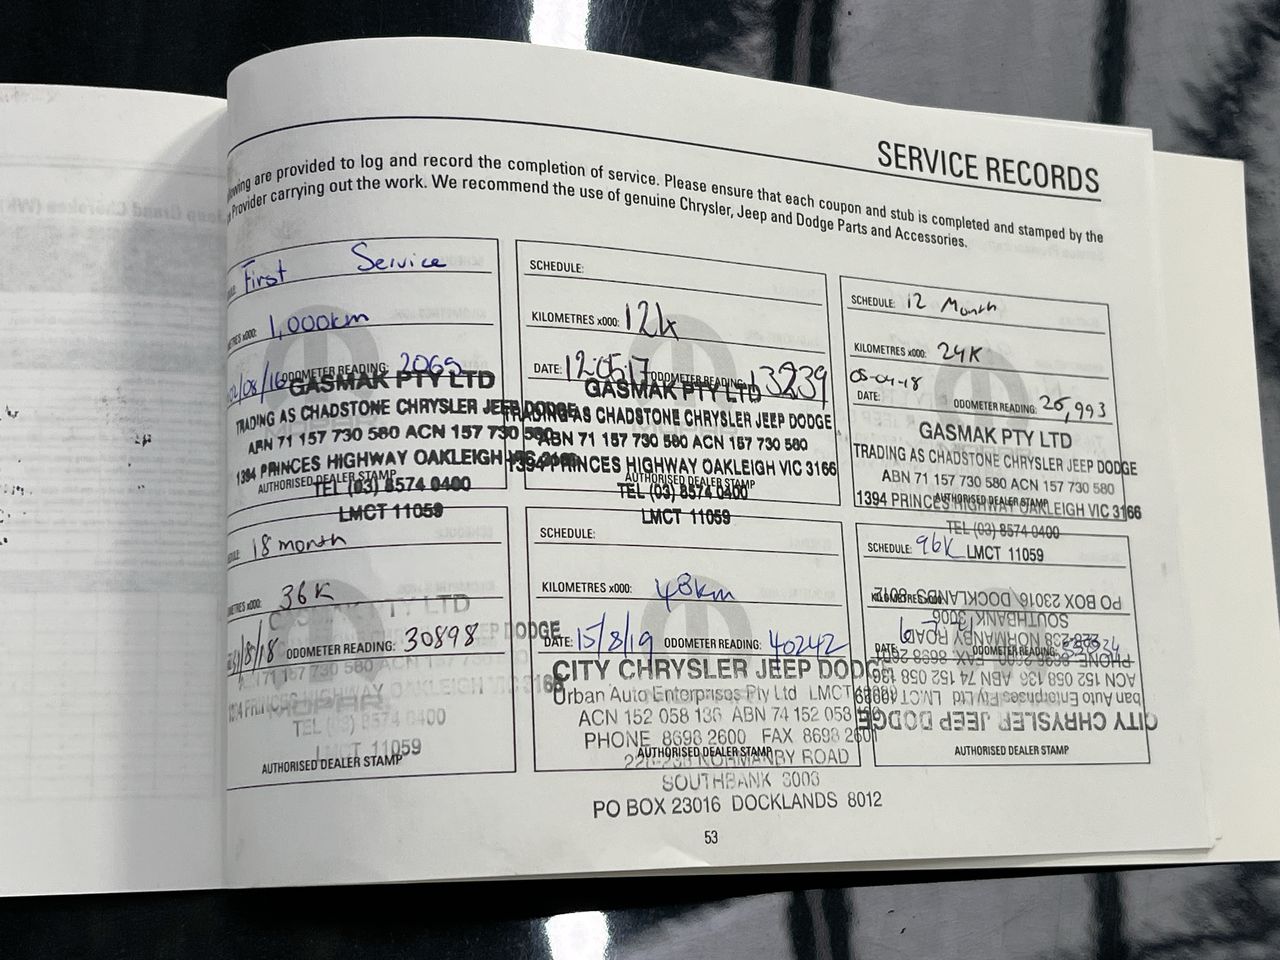 SERVICE RECORDS
owing are provided to log and record the completion of service. Please ensure that each coupon and stub is completed and stamped by the
Provider carrying out the work. We recommend the use of genuine Chrysler, Jeep and Dodge Parts and Accessories.
First Service
TRES x000: 1,000km
/08/16 ODOMETER READING: 2065
GASMAK PTY LTD
TRADING AS CHADSTONE CHRYSLER JEEP DODGE
ABN 71 157 730 580 ACN 157 730 580
1394 PRINCES HIGHWAY OAKLEIGH VIC 3166
AUTHORISED DEALER STAMP
TEL (03) 8574 0400
LMCT 11059
SCHEDULE:
KILOMETRES x000: 12k
DATE: 12.05.17 ODOMETER READING: 13239
GASMAK PTY LTD
TRADING AS CHADSTONE CHRYSLER JEEP DODGE
ABN 71 157 730 580 ACN 157 730 580
1394 PRINCES HIGHWAY OAKLEIGH VIC 3166
AUTHORISED DEALER STAMP
TEL (03) 8574 0400
LMCT 11059
SCHEDULE: 12 Month
KILOMETRES x000: 24K
05-04-18
DATE: ODOMETER READING: 26,993
GASMAK PTY LTD
TRADING AS CHADSTONE CHRYSLER JEEP DODGE
ABN 71 157 730 580 ACN 157 730 580
1394 PRINCES HIGHWAY OAKLEIGH VIC 3166
AUTHORISED DEALER STAMP
TEL (03) 8574 0400
LMCT 11059
18 month
x000: 36K
/8/18 ODOMETER READING: 30898
PTY LTD
JEEP DODGE
71 157 730 580 ACN 157 730
1394 PRINCES HIGHWAY OAKLEIGH VIC 3166
MOPAR
TEL (03) 8574 0400
LMCT 11059
AUTHORISED DEALER STAMP
SCHEDULE:
KILOMETRES x000: 48km
DATE: 15/8/19 ODOMETER READING: 40242
CITY CHRYSLER JEEP DODGE
Urban Auto Enterprises Pty Ltd LMCT
ACN 152 058 136 ABN 74 152 058 136
PHONE 8698 2600 FAX 8698 2601
AUTHORISED DEALER STAMP
NORMANBY ROAD
SOUTHBANK 3006
PO BOX 23016 DOCKLANDS 8012
SCHEDULE: 96K
KILOMETRES x000:
DATE: ODOMETER READING:
CITY CHRYSLER JEEP DODGE
ban Auto Enterprises Pty Ltd LMCT
ACN 152 058 136 ABN 74 152 058 136
PHONE 8698 2600 FAX 8698 2601
NORMANBY ROAD
SOUTHBANK 3006
PO BOX 23016 DOCKLANDS 8012
AUTHORISED DEALER STAMP
53